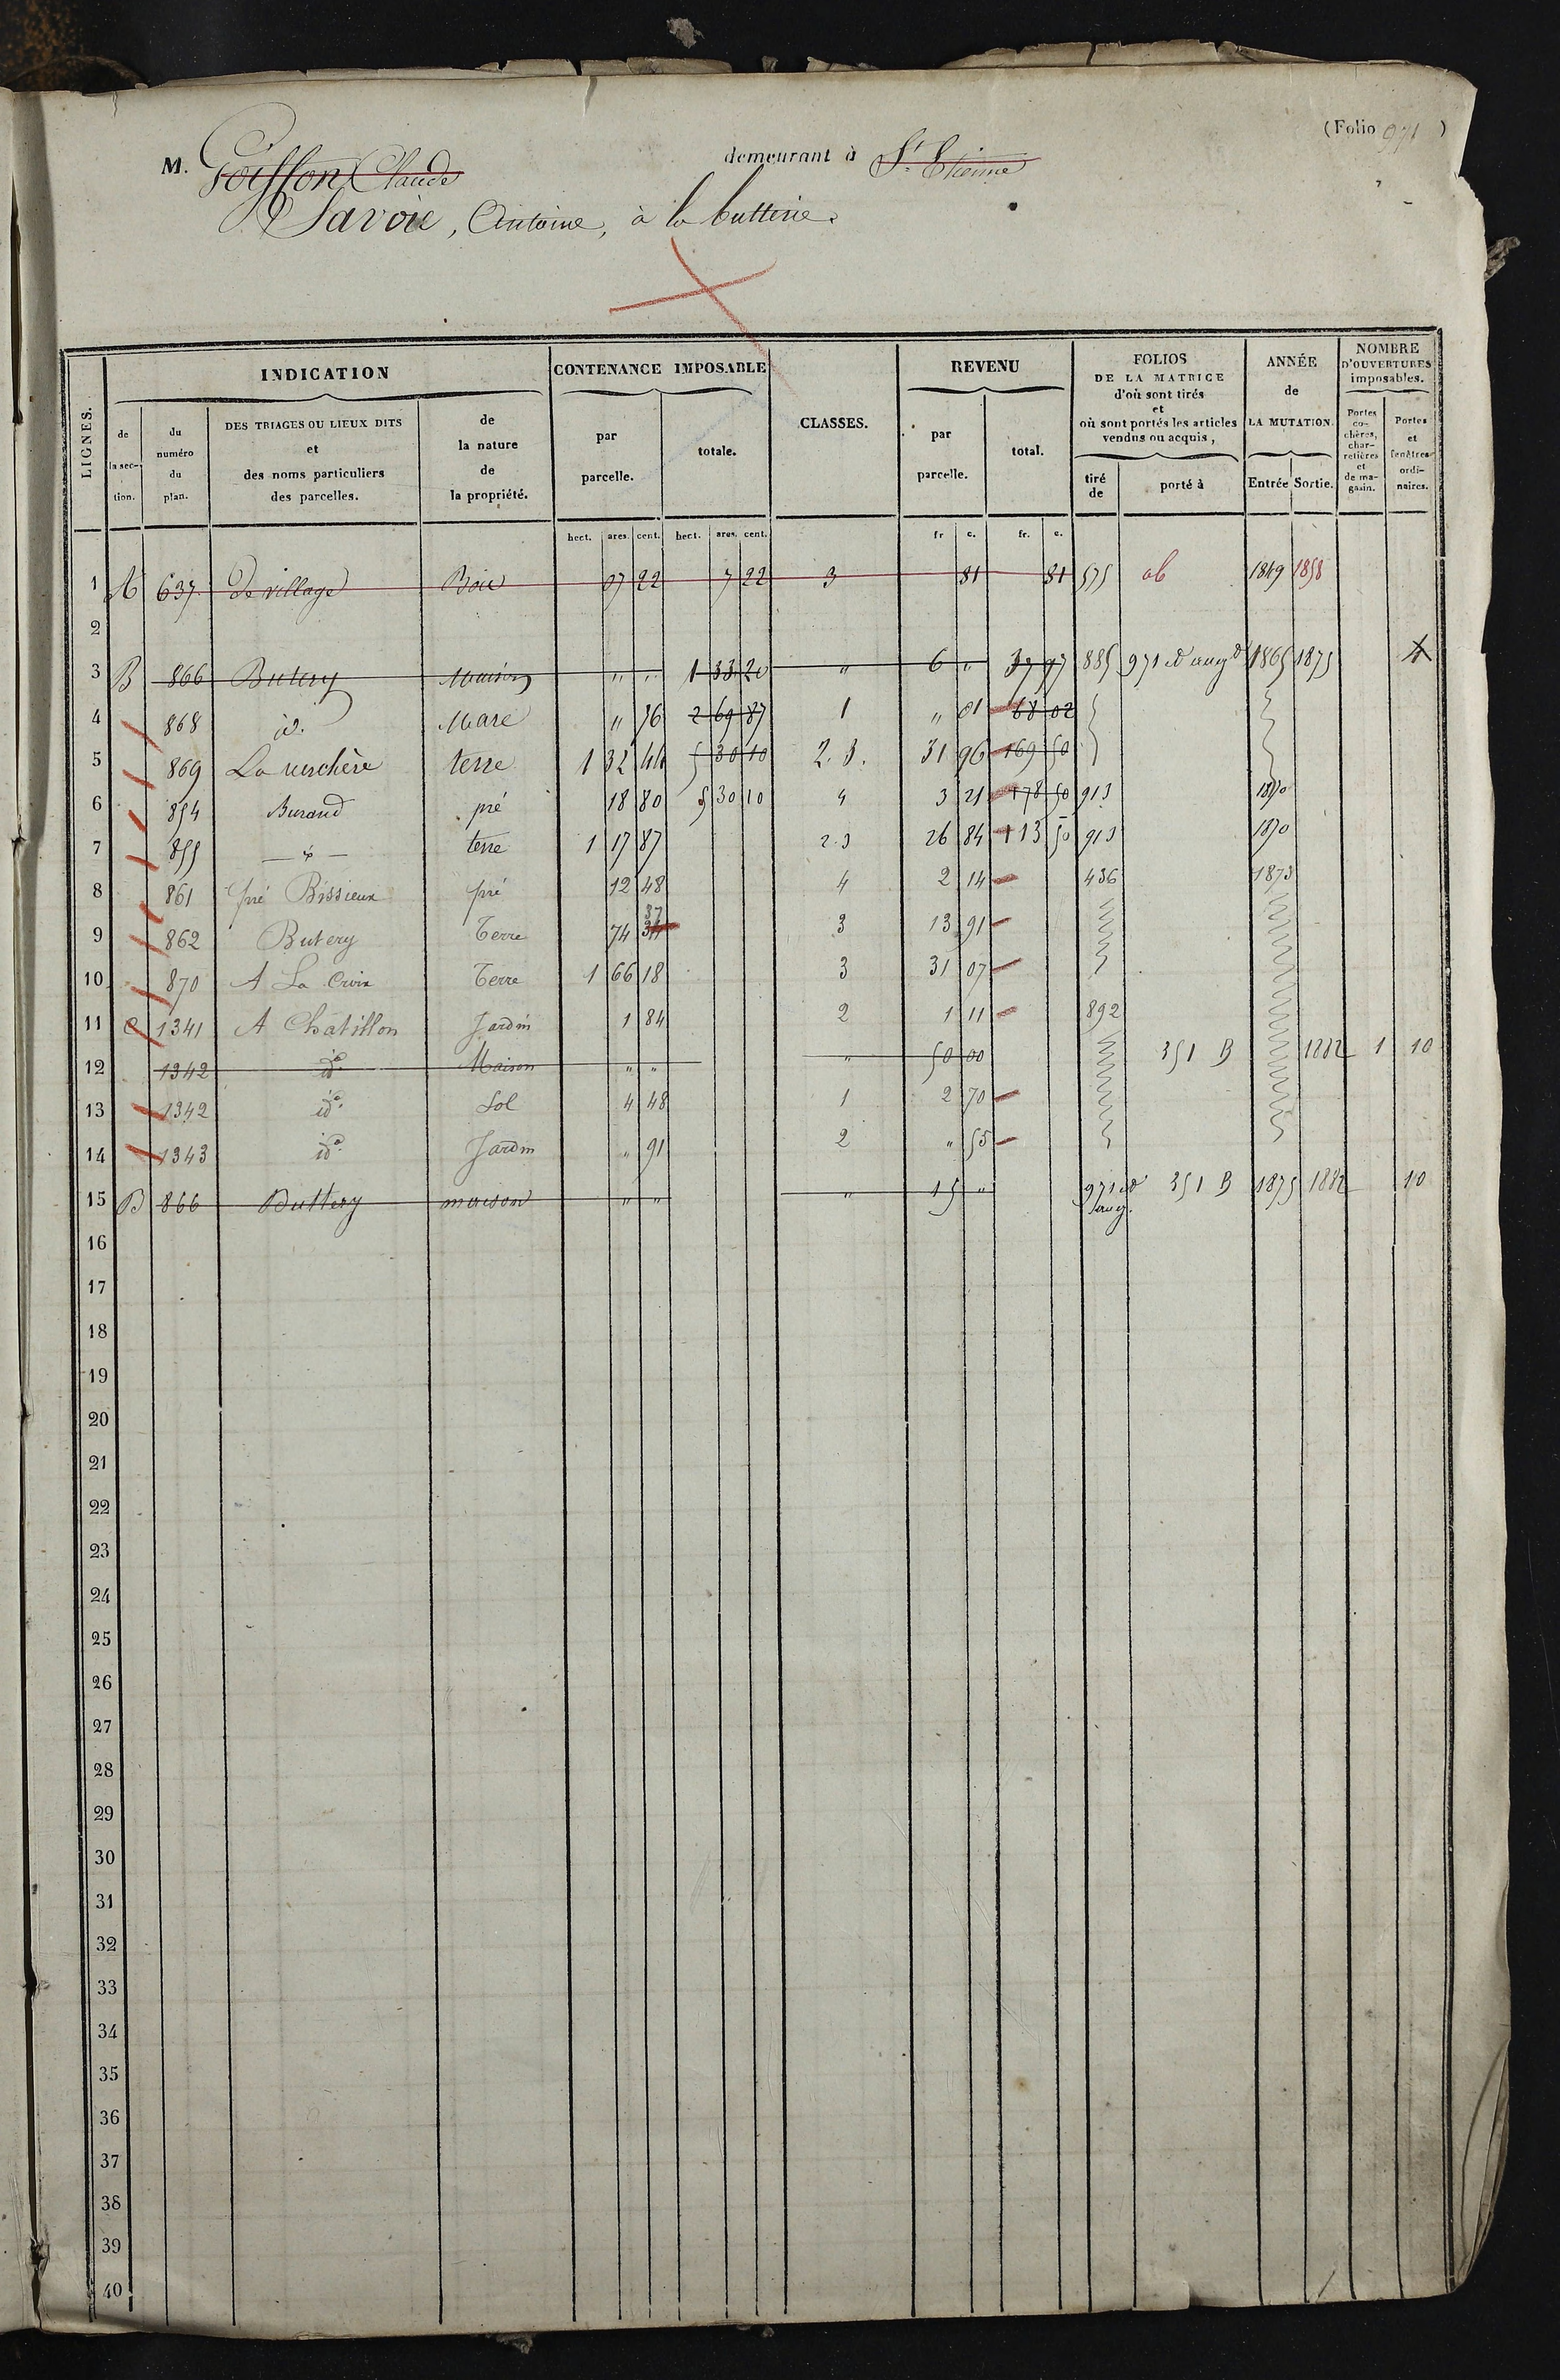 (Folio 971)
M. Goiffon Claude demeurant à St. Etienne
Savoie, Antoine, à la butterie.
LIGNES.
INDICATION
de la section.
du numéro du plan.
DES TRIAGES OU LIEUX DITS et des noms particuliers des parcelles.
de la nature de la propriété.
CONTENANCE IMPOSABLE
par parcelle.
totale.
CLASSES.
REVENU
par parcelle.
total.
FOLIOS DE LA MATRICE d'où sont tirés et où sont portés les articles vendus ou acquis,
tiré de
porté à
ANNÉE de LA MUTATION.
Entrée Sortie.
NOMBRE D'OUVERTURES imposables.
Portes cochères, charretières et de magasin.
Portes et fenêtres ordinaires.
hect. ares. cent. hect. ares. cent. fr c. fr. c.
1 A 637 De village Bois 07 22 7 22 3 81 81 575 ob 1849 1858
2
3 B 866 Butery Maison " " 1 33 20 " 6 " 37 97 885 971 d'augon 1865 1875 4
4 868 id. Mare " 76 2 69 87 1 " 01 68 02
5 869 La verchère terre 1 32 44 5 30 10 2.3. 31 96 169 50
6 854 Burand pré 18 80 5 30 10 4 3 21 178 50 913 1870
7 855 — id — terre 1 17 87 2.3 26 84 113 50 913 1870
8 861 pré Bissieux pré 12 48 4 2 14 436 1873
9 862 Butery Terre 74 34 37 3 13 91
10 870 A La Croix Terre 1 66 18 3 31 07
11 C 1341 A Châtillon Jardin 1 84 2 1 11 892
12 1342 id. Maison " " " 50 00 351 B 1882 1 10
13 1342 id. Sol 4 48 1 2 70
14 1343 id. Jardin " 91 2 " 55
15 B 866 Buttery maison " " " 15 " 971 351 B 1875 1882 10
16
17
18
19
20
21
22
23
24
25
26
27
28
29
30
31
32
33
34
35
36
37
38
39
40